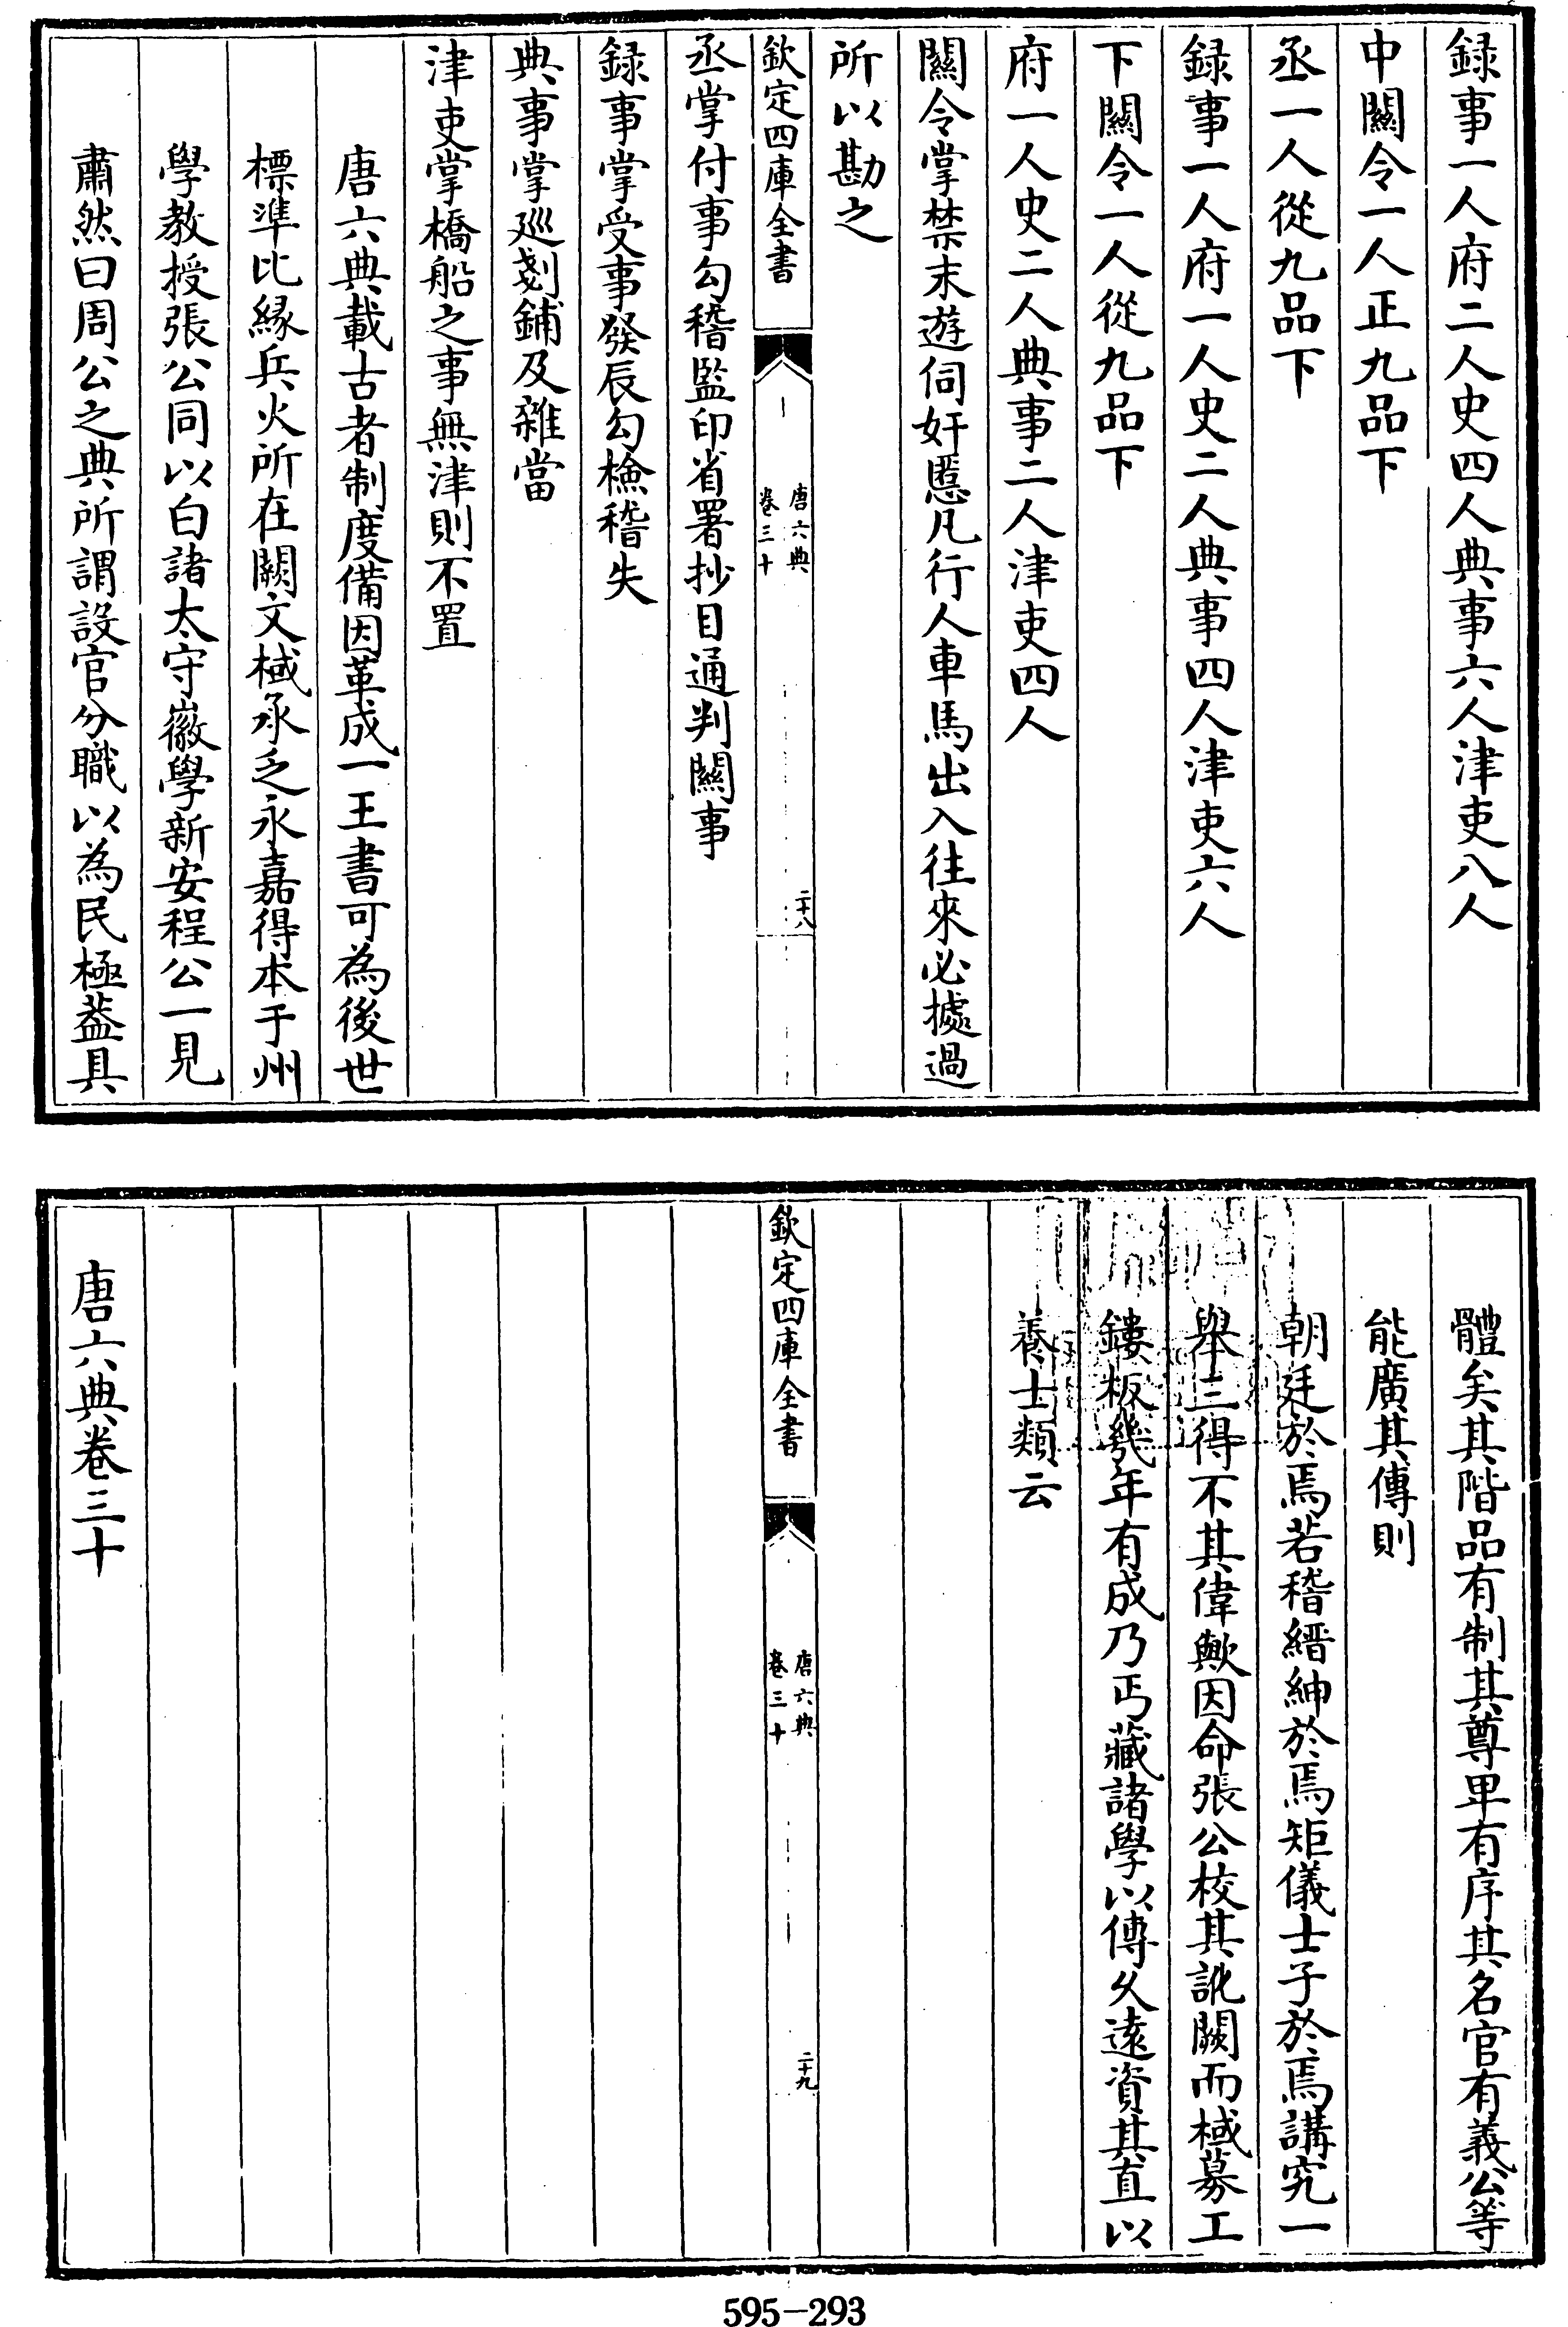 録事一人府二人史四人典事六人津吏八人
中關令一人正九品下
丞一人從九品下
録事一人府一人史二人典事四人津吏六人
下關令一人從九品下
府一人史二人典事二人津吏四人
關令掌禁末遊伺奸慝凡行人車馬出入往來必據過
所以勘之
欽定四庫全書
唐六典
卷三十
二十八
丞掌付事勾稽監印省署抄目通判關事
録事掌受事發辰勾檢稽失
典事掌巡剗鋪及雜當
津吏掌橋船之事無津則不置
唐六典載古者制度備因革成一王書可為後世
標準比緣兵火所在闕文棫承乏永嘉得本于州
學教授張公同以白諸太守徽學新安程公一見
肅然曰周公之典所謂設官分職以為民極葢具
體矣其階品有制其尊卑有序其名官有義公等
能廣其傳則
朝廷於焉若稽縉紳於焉矩儀士子於焉講究一
舉三得不其偉歟因命張公校其訛闕而棫募工
鏤板幾年有成乃丐藏諸學以傳久遠資其直以
養士類云
欽定四庫全書
唐六典
卷三十
二十九
唐六典卷三十
595-293